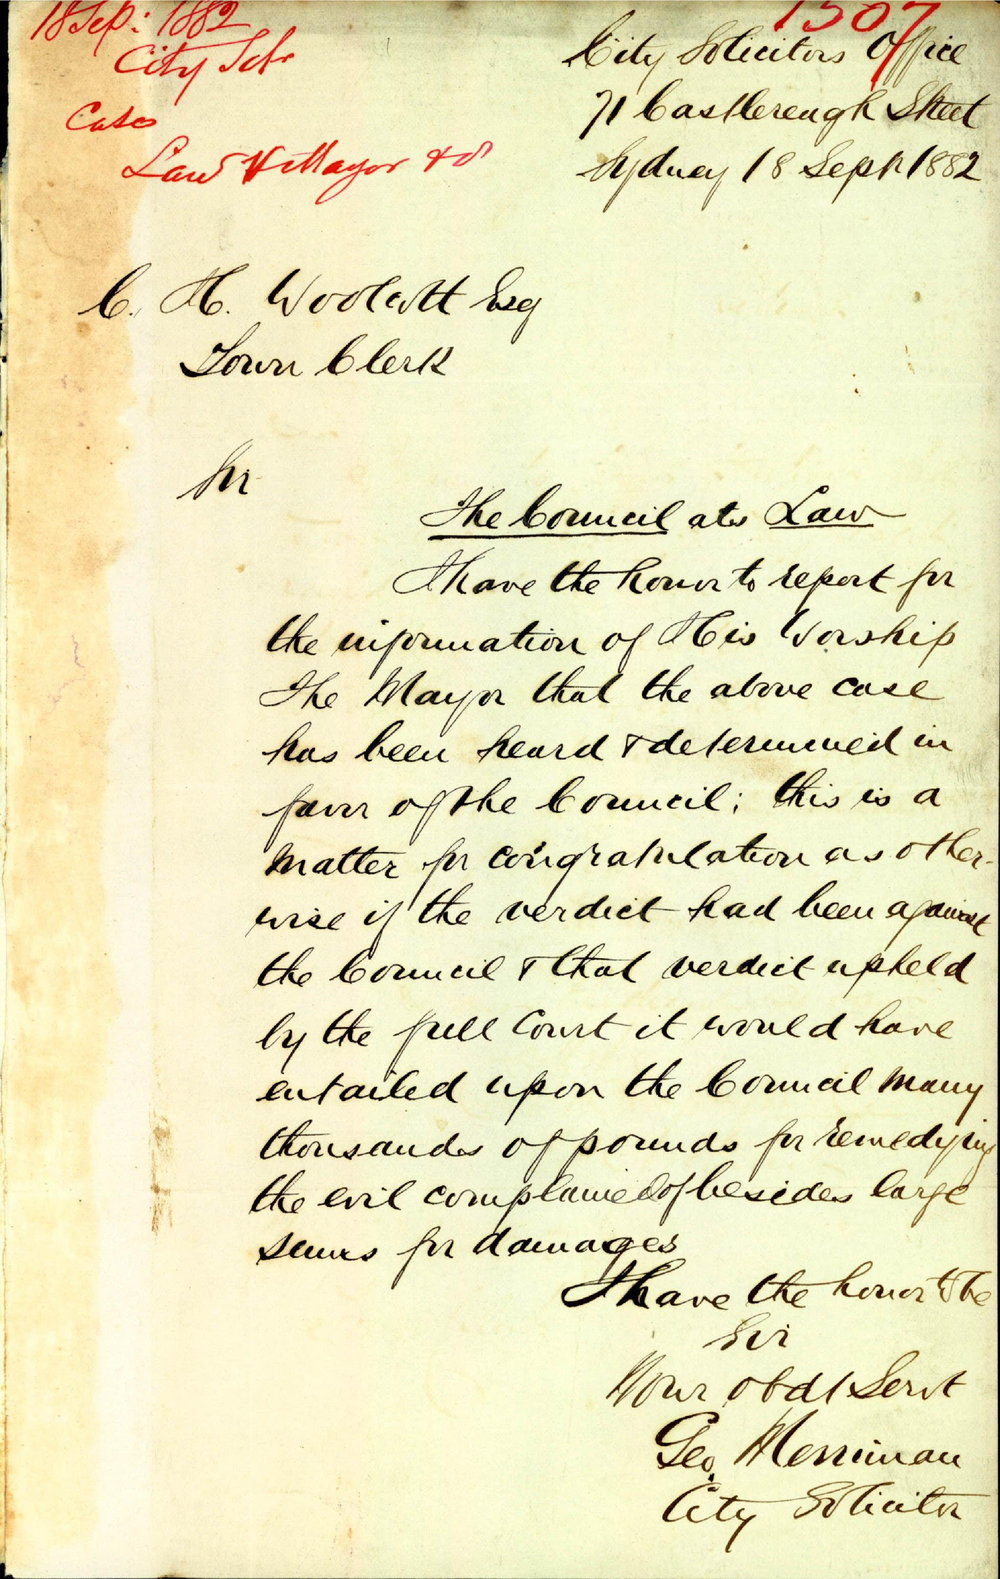 18 Sep: 1882
City Solr
Case
Law v Mayor &c
1507
City Solicitors Office
71 Castlereagh Street
Sydney 18 Sept 1882
C. H. Woolcott Esq
Town Clerk
Sir
The Council ats Law
I have the honor to report for
the information of His Worship
The Mayor that the above case
has been heard & determined in
favor of the Council; this is a
matter for congratulation as other-
wise if the verdict had been against
the Council & that verdict upheld
by the full Court it would have
entailed upon the Council many
thousands of pounds for remedying
the evil complained of besides large
sums for damages
I have the honor to be
Sir
Your obdt Servt
Geo. Merriman
City Solicitor